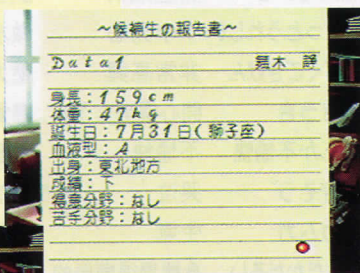 ～候補生の報告書～
Data1 鏑木 靜
身長：159cm
体重：47kg
誕生日：7月31日(獅子座)
血液型：A
出身：東北地方
成績：下
得意分野：なし
苦手分野：なし